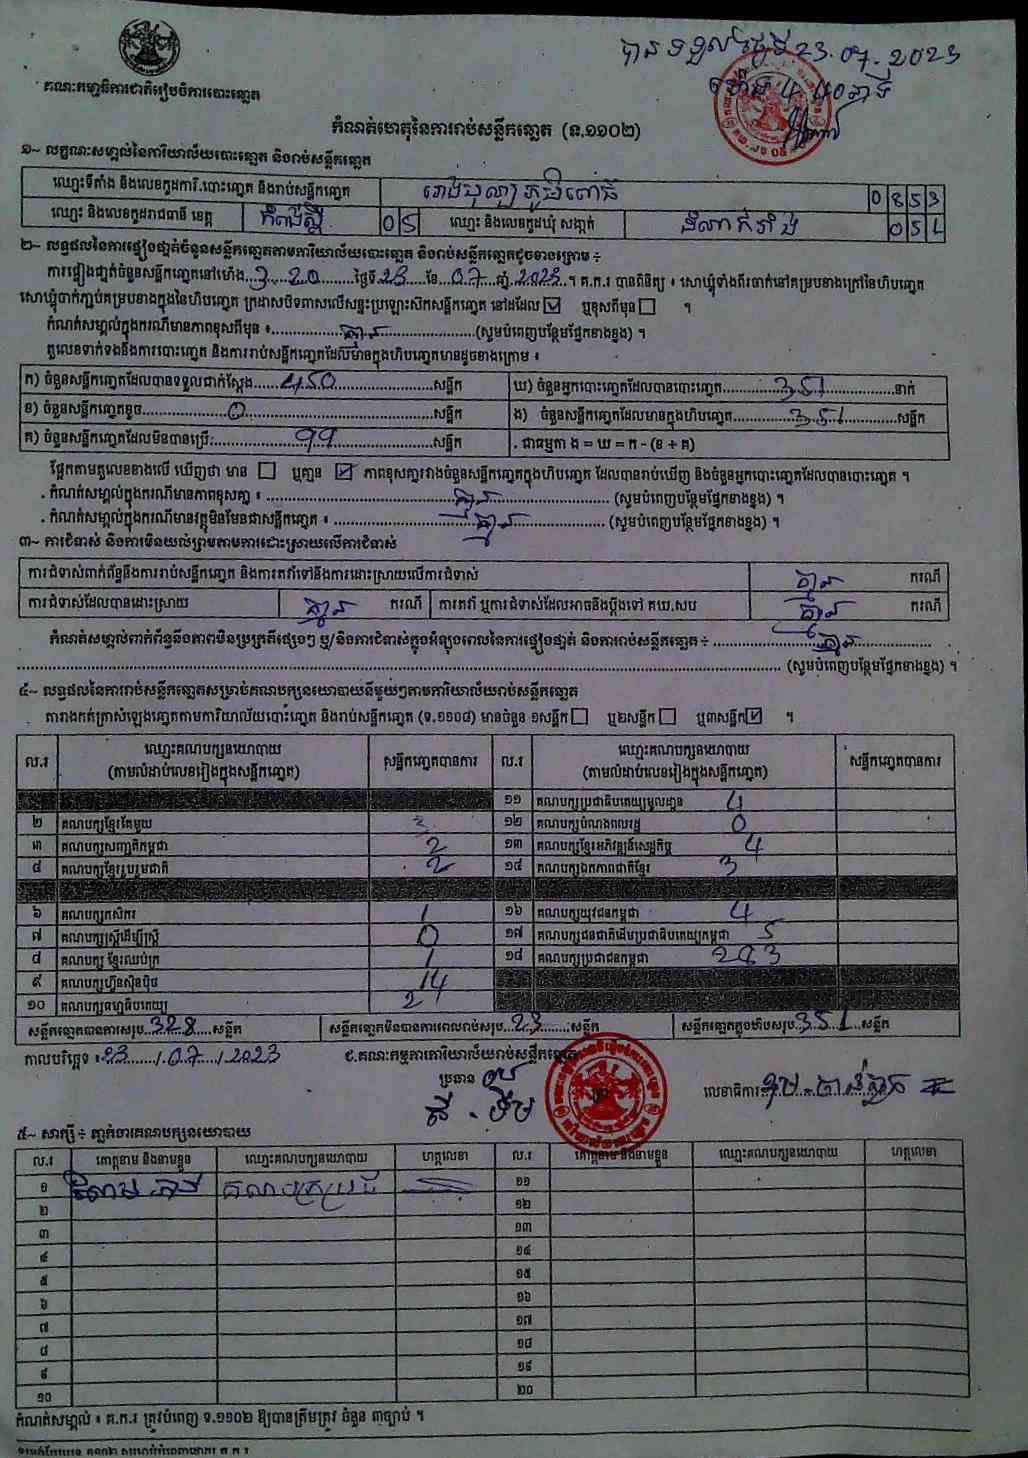 បានទទួលថ្ងៃទី 23.07.2023
ម៉ោង 4 40 នាទី
គណៈកម្មាធិការជាតិរៀបចំការបោះឆ្នោត
កំណត់ហេតុនៃការរាប់សន្លឹកឆ្នោត (ទ.១១០២)
១~ លក្ខណៈសម្គាល់នៃការិយាល័យបោះឆ្នោត និងរាប់សន្លឹកឆ្នោត
ឈ្មោះទីតាំង និងលេខកូដការិ.បោះឆ្នោត និងរាប់សន្លឹកឆ្នោត 0853
ឈ្មោះ និងលេខកូដរាជធានី ខេត្ត កំពង់ស្ពឺ 05 ឈ្មោះ និងលេខកូដឃុំ សង្កាត់ 051
២~ លទ្ធផលនៃការផ្ទៀងផ្ទាត់ចំនួនសន្លឹកឆ្នោតតាមការិយាល័យបោះឆ្នោត និងរាប់សន្លឹកឆ្នោតដូចខាងក្រោម ៖
ការផ្ទៀងផ្ទាត់ចំនួនសន្លឹកឆ្នោតនៅម៉ោង 3 20 ថ្ងៃទី 23 ខែ 07 ឆ្នាំ 2023 ។ គ.ក.រ បានពិនិត្យ ៖ សោឃ្លុំទាំងពីរចាក់នៅគម្របខាងក្រៅនៃហិបឆ្នោត
សោឃ្លុំចាក់ភ្ជាប់គម្របខាងក្នុងនៃហិបឆ្នោត ក្រដាសបិទពាសលើសន្ទះប្រឡោះស៊កសន្លឹកឆ្នោត នៅដដែល ☑ ឬខុសពីមុន ☐ ។
កំណត់សម្គាល់ក្នុងករណីមានភាពខុសពីមុន ៖ គ្មាន (សូមបំពេញបន្ថែមផ្នែកខាងខ្នង) ។
តួលេខទាក់ទងនឹងការបោះឆ្នោត និងការរាប់សន្លឹកឆ្នោតដែលមានក្នុងហិបឆ្នោតមានដូចខាងក្រោម ៖
ក) ចំនួនសន្លឹកឆ្នោតដែលបានទទួលជាក់ស្តែង 450 សន្លឹក ឃ) ចំនួនអ្នកបោះឆ្នោតដែលបានបោះឆ្នោត 351 នាក់
ខ) ចំនួនសន្លឹកឆ្នោតខូច 0 សន្លឹក ង) ចំនួនសន្លឹកឆ្នោតដែលមានក្នុងហិបឆ្នោត 351 សន្លឹក
គ) ចំនួនសន្លឹកឆ្នោតដែលមិនបានប្រើ: 99 សន្លឹក . ជាធម្មតា ង = ឃ = ក - (ខ + គ)
ផ្អែកតាមតួលេខខាងលើ ឃើញថា មាន ☐ ឬគ្មាន ☑ ភាពខុសគ្នារវាងចំនួនសន្លឹកឆ្នោតក្នុងហិបឆ្នោត ដែលបានរាប់ឃើញ និងចំនួនអ្នកបោះឆ្នោតដែលបានបោះឆ្នោត ។
. កំណត់សម្គាល់ក្នុងករណីមានភាពខុសគ្នា ៖ គ្មាន (សូមបំពេញបន្ថែមផ្នែកខាងខ្នង) ។
. កំណត់សម្គាល់ក្នុងករណីមានវត្ថុមិនមែនជាសន្លឹកឆ្នោត ៖ គ្មាន (សូមបំពេញបន្ថែមផ្នែកខាងខ្នង) ។
៣~ ការជំទាស់ និងការមិនយល់ព្រមតាមការដោះស្រាយលើការជំទាស់
ការជំទាស់ពាក់ព័ន្ធនឹងការរាប់សន្លឹកឆ្នោត និងការតវ៉ាទៅនឹងការដោះស្រាយលើការជំទាស់ គ្មាន ករណី
ការជំទាស់ដែលបានដោះស្រាយ គ្មាន ករណី ការតវ៉ា ឬការជំទាស់ដែលអាចនឹងប្តឹងទៅ គឃ.សប គ្មាន ករណី
កំណត់សម្គាល់ពាក់ព័ន្ធនឹងភាពមិនប្រក្រតីផ្សេងៗ ឬ/និងការជំទាស់ក្នុងអំឡុងពេលនៃការផ្ទៀងផ្ទាត់ និងការរាប់សន្លឹកឆ្នោត ៖ គ្មាន
(សូមបំពេញបន្ថែមផ្នែកខាងខ្នង) ។
៤~ លទ្ធផលនៃការរាប់សន្លឹកឆ្នោតសម្រាប់គណបក្សនយោបាយនីមួយៗតាមការិយាល័យរាប់សន្លឹកឆ្នោត
តារាងកត់ត្រាសំឡេងឆ្នោតតាមការិយាល័យបោះឆ្នោត និងរាប់សន្លឹកឆ្នោត (ទ.១១០៨) មានចំនួន ១សន្លឹក ☐ ឬ២សន្លឹក ☐ ឬ៣សន្លឹក ☑ ។
ល.រ ឈ្មោះគណបក្សនយោបាយ (តាមលំដាប់លេខរៀងក្នុងសន្លឹកឆ្នោត) សន្លឹកឆ្នោតបានការ ល.រ ឈ្មោះគណបក្សនយោបាយ (តាមលំដាប់លេខរៀងក្នុងសន្លឹកឆ្នោត) សន្លឹកឆ្នោតបានការ
១១ គណបក្សប្រជាធិបតេយ្យមូលដ្ឋាន 4
២ គណបក្សខ្មែរតែមួយ ១២ គណបក្សបំណងពលរដ្ឋ 0
៣ គណបក្សសញ្ជាតិកម្ពុជា 2 ១៣ គណបក្សខ្មែរអភិវឌ្ឍន៍សេដ្ឋកិច្ច 4
៤ គណបក្សខ្មែររួបរួមជាតិ 2 ១៤ គណបក្សឯកភាពជាតិខ្មែរ 3
៦ គណបក្សកសិករ 1 ១៦ គណបក្សយុវជនកម្ពុជា 4
៧ គណបក្សស្ត្រីដើម្បីស្ត្រី 0 ១៧ គណបក្សជនជាតិដើមប្រជាធិបតេយ្យកម្ពុជា 5
៨ គណបក្ស ខ្មែរឈប់ក្រ 1 ១៨ គណបក្សប្រជាជនកម្ពុជា 283
៩ គណបក្សហ្វ៊ុនស៊ិនប៉ិច 14
១០ គណបក្សធម្មាធិបតេយ្យ 2
សន្លឹកឆ្នោតបានការសរុប 328 សន្លឹក សន្លឹកឆ្នោតមិនបានការពេលរាប់សរុប 23 សន្លឹក សន្លឹកឆ្នោតក្នុងហិបសរុប 351 សន្លឹក
កាលបរិច្ឆេទ ៖ 23 / 07 / 2023 ជ.គណៈកម្មការការិយាល័យរាប់សន្លឹកឆ្នោត
ប្រធាន លេខាធិការ
៥~ សាក្សី ៖ ភ្នាក់ងារគណបក្សនយោបាយ
ល.រ គោត្តនាម និងនាមខ្លួន ឈ្មោះគណបក្សនយោបាយ ហត្ថលេខា ល.រ គោត្តនាម និងនាមខ្លួន ឈ្មោះគណបក្សនយោបាយ ហត្ថលេខា
១ ១១
២ ១២
៣ ១៣
៤ ១៤
៥ ១៥
៦ ១៦
៧ ១៧
៨ ១៨
៩ ១៩
១០ ២០
កំណត់សម្គាល់ ៖ គ.ក.រ ត្រូវបំពេញ ទ.១១០២ ឱ្យបានត្រឹមត្រូវ ចំនួន ៣ច្បាប់ ។